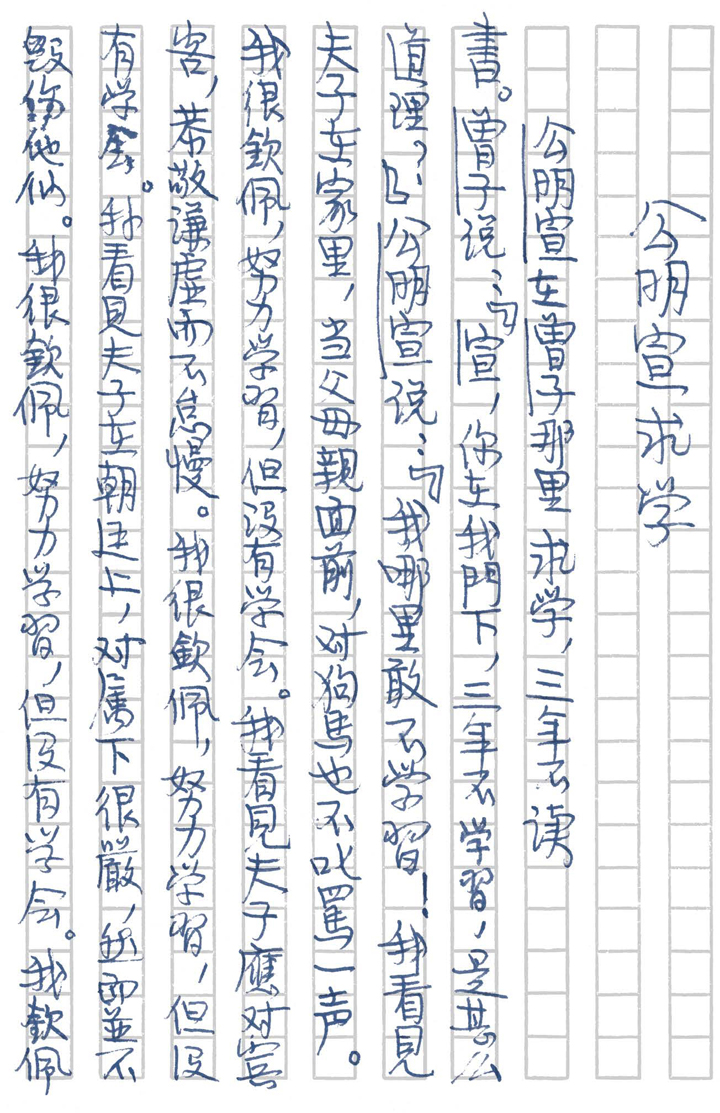 公明宣求学
公明宣在曾子那里求学，三年不读
書。曾子说：「宣，你在我門下，三年不学習，是甚么
道理？」公明宣说：「我哪里敢不学習！我看見
夫子在家里，当父母親面前，对狗馬也不叱罵一声。
我很欽佩，努力学習，但没有学会。我看見夫子應对宾
客，恭敬谦虚而不怠慢。我很欽佩，努力学習，但没
有学会。我看見夫子在朝廷上，对属下很嚴，然而並不
毁伤他们。我很欽佩，努力学習，但没有学会。我欽佩